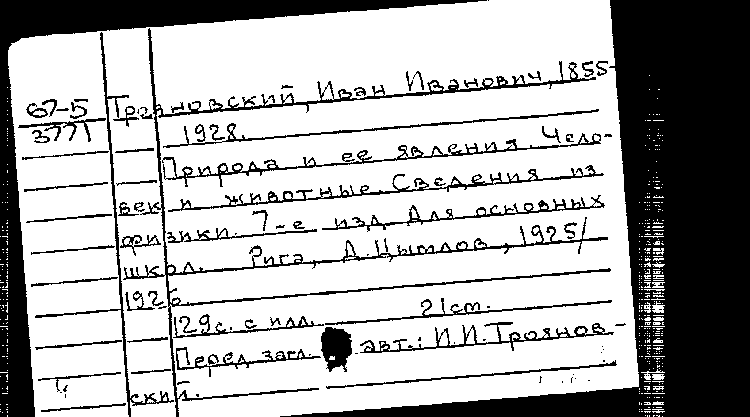 67-5
3771
Трояновский, Иван Иванович, 1855-
1928.
Природа и ее явления. Чело-
век и животные. Сведения из
физики. 7-е изд. Для основных
школ. Рига, Д. Цымлов, 1925/
1926.
129с. с илл. 21см.
Перед загл. авт.: И.И. Троянов-
ский.
4